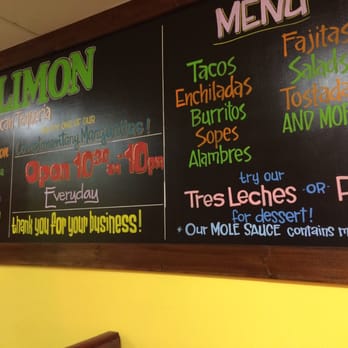 LIMON
Taqueria
Complimentary Margaritas!
Open 10am 10pm
Everyday
thank you for your business!
MENU
Tacos
Enchiladas
Burritos
Sopes
Alambres
Fajitas
Salads
Tostada
AND MOR
try our
TRES LECHES -OR- P
for dessert!
* Our MOLE SAUCE contains